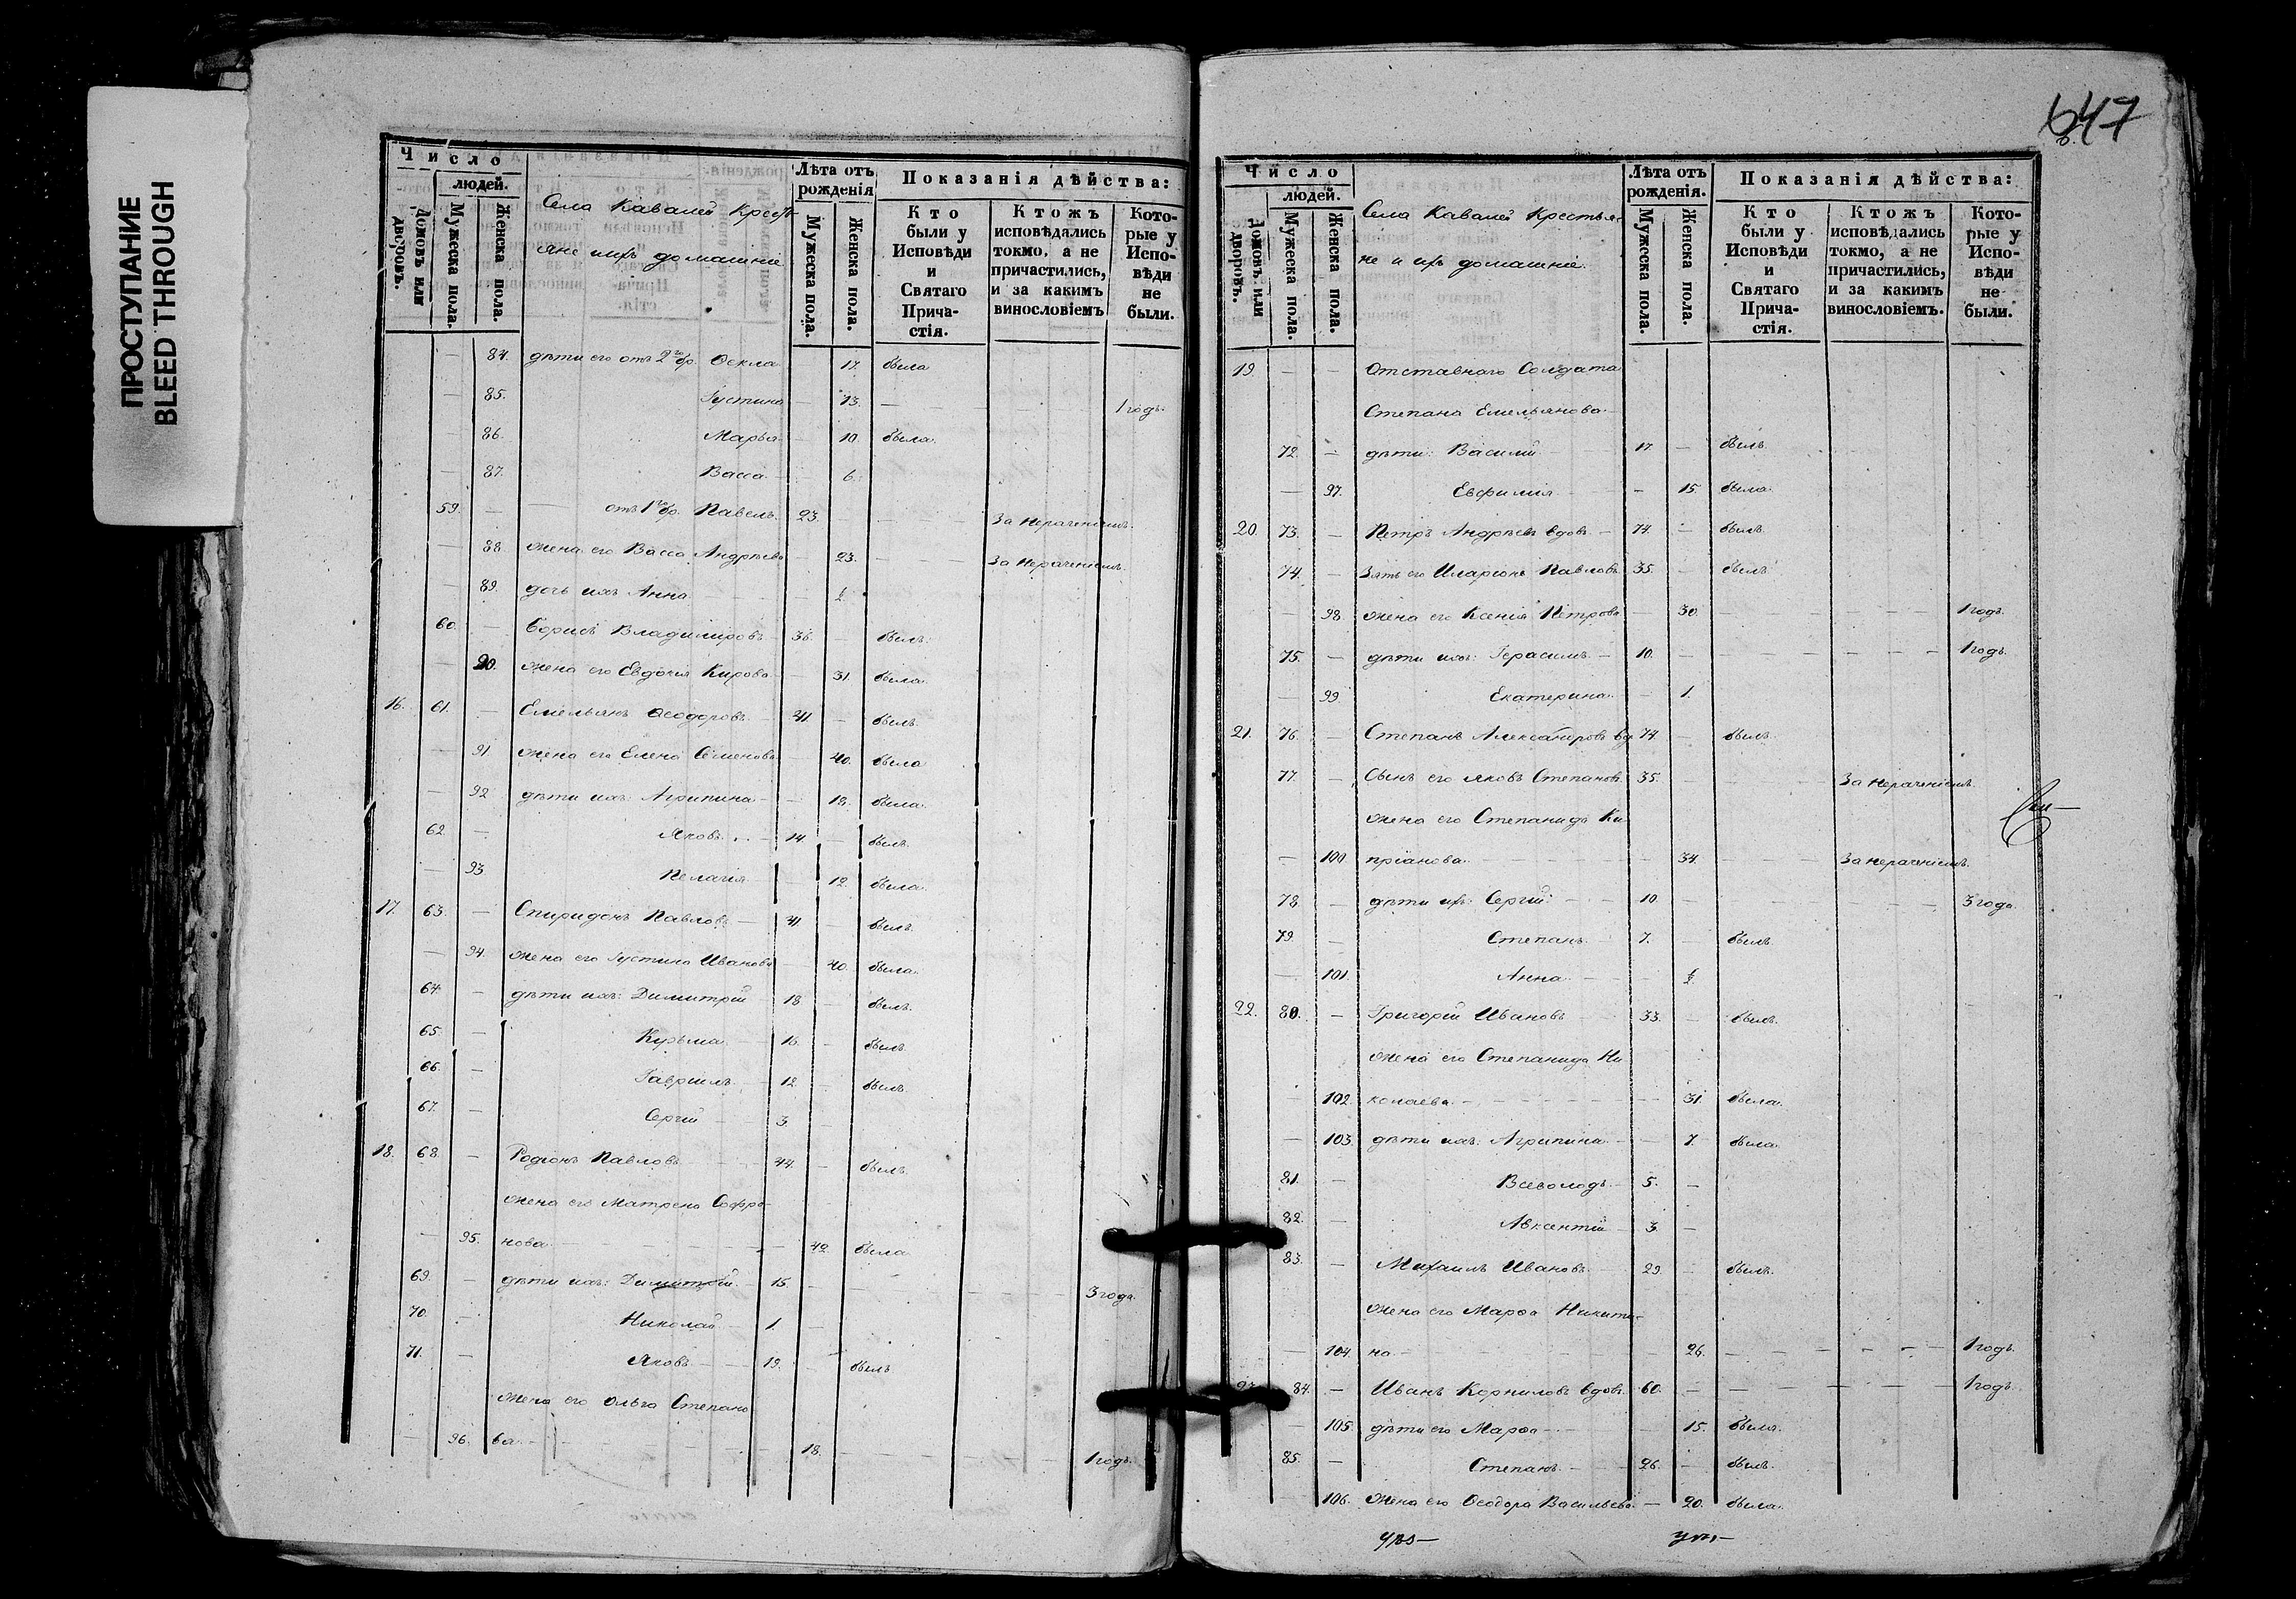 ПРОСТУПАНИЕ
BLEED THROUGH
Число
людей.
Домовъ или дворовъ.
Мужеска пола.
Женска пола.
Села Кавалей Кресть-
яне ихъ домашніе
Лѣта отъ рожденія
Мужеска пола.
Женска пола.
Показанія дѣйства:
Кто были у Исповѣди и Святаго Прича-стія.
Ктожъ исповѣдались токмо, а не причастились, и за какимъ винословіемъ
Кото-рые у Испо-вѣди не были.
— 84. дѣти его отъ 2го бр. Ѳекла — 17. была
— 85. Іустина — 13. — 1 годъ.
— 86. Марья — 10. была.
— 87. Васса — 6.
59. — отъ 1го бр. Павелъ. 23. — За нераченіемъ.
— 88. жена его Васса Андрѣева — 23. — За нераченіемъ.
— 89. дочь ихъ Анна
60. — Борисъ Владиміровъ — былъ.
— 90. жена его Евдокія Кирова — 31. была.
16. 61. — Емельянъ Ѳеодоровъ 41. — былъ.
— 91. жена его Елена Семенова — 40. была
— 92. дѣти ихъ: Агрипина — 18. была.
62. — Яковъ — 14. — былъ.
— 93. Пелагія — 12. была.
17. 63. — Спиридонъ Павловъ — 41. — былъ.
— 94. жена его Іустина Иванова — 40. была.
64. — дѣти ихъ: Димитрій 18 — былъ.
65. — Курьма — 16. — былъ.
66. — Гавріилъ — 12. — былъ.
67. — Сергій — 3.
18. 68. — Родіонъ Павловъ 44. — былъ.
жена его Матрена Софро-
— 95. нова — 42. была
69. — дѣти ихъ: Димитрій. — 15. — 3 года.
70. — Николай — 1. —
71. — Яковъ — 19. — былъ
жена его Ольга Степано
— 96. ва. — 18. — 1 годъ.
647
Число
людей.
Домовъ или дворовъ.
Мужеска пола.
Женска пола.
Села Кавалей Крестья-
не и ихъ домашніе.
Лѣта отъ рожденія.
Мужеска пола.
Женска пола.
Показанія дѣйства:
Кто были у Исповѣди и Святаго Прича-стія.
Ктожъ исповѣдались токмо, а не причастились, и за какимъ винословіемъ.
Кото-рые у Испо-вѣди не были.
19. — — Отставнаго Солдата
Степана Емельянова
72. — дѣти: Василій 17. — былъ.
— 97. Евфимія — 15. была.
20. 73. — Петръ Андрѣевъ вдовъ — 74. — былъ.
74. — Зять его Иларіонъ Павловъ 35. — былъ.
— 98. жена его Ксенія Петрова — 30. — 1 годъ.
75. — дѣти ихъ: Герасимъ — 10. — 1 годъ.
— 99. Екатерина — 1.
21. 76. — Степанъ Александровъ вд. 74. — былъ.
77. — Сынъ его Яковъ Степановъ 35. — За нераченіемъ.
жена его Степанида Ки-
— 100. пріанова. — 34. — За нераченіемъ.
78. — дѣти ихъ: Сергій — 10 — 3 года.
79. — Степанъ 7. — былъ.
— 101. Анна —
22. 80. — Григорій Ивановъ 33. — былъ.
жена его Степанида Ни-
— 102. колаева. — 31. была.
— 103. дѣти ихъ: Агрипина — 7. была.
81. — Всеволодъ — 5. —
82. — Авксентій — 3. —
83. — Михаилъ Ивановъ. 29. — былъ.
жена его Марѳа Никити-
— 104. на — 26. — 1 годъ.
84. — Иванъ Корниловъ вдовъ. 60. — 1 годъ.
— 105. дѣти его Марѳа — 15. была.
85. — Степанъ — 26. — былъ.
— 106. жена его Ѳеодора Васильева — 20. была.